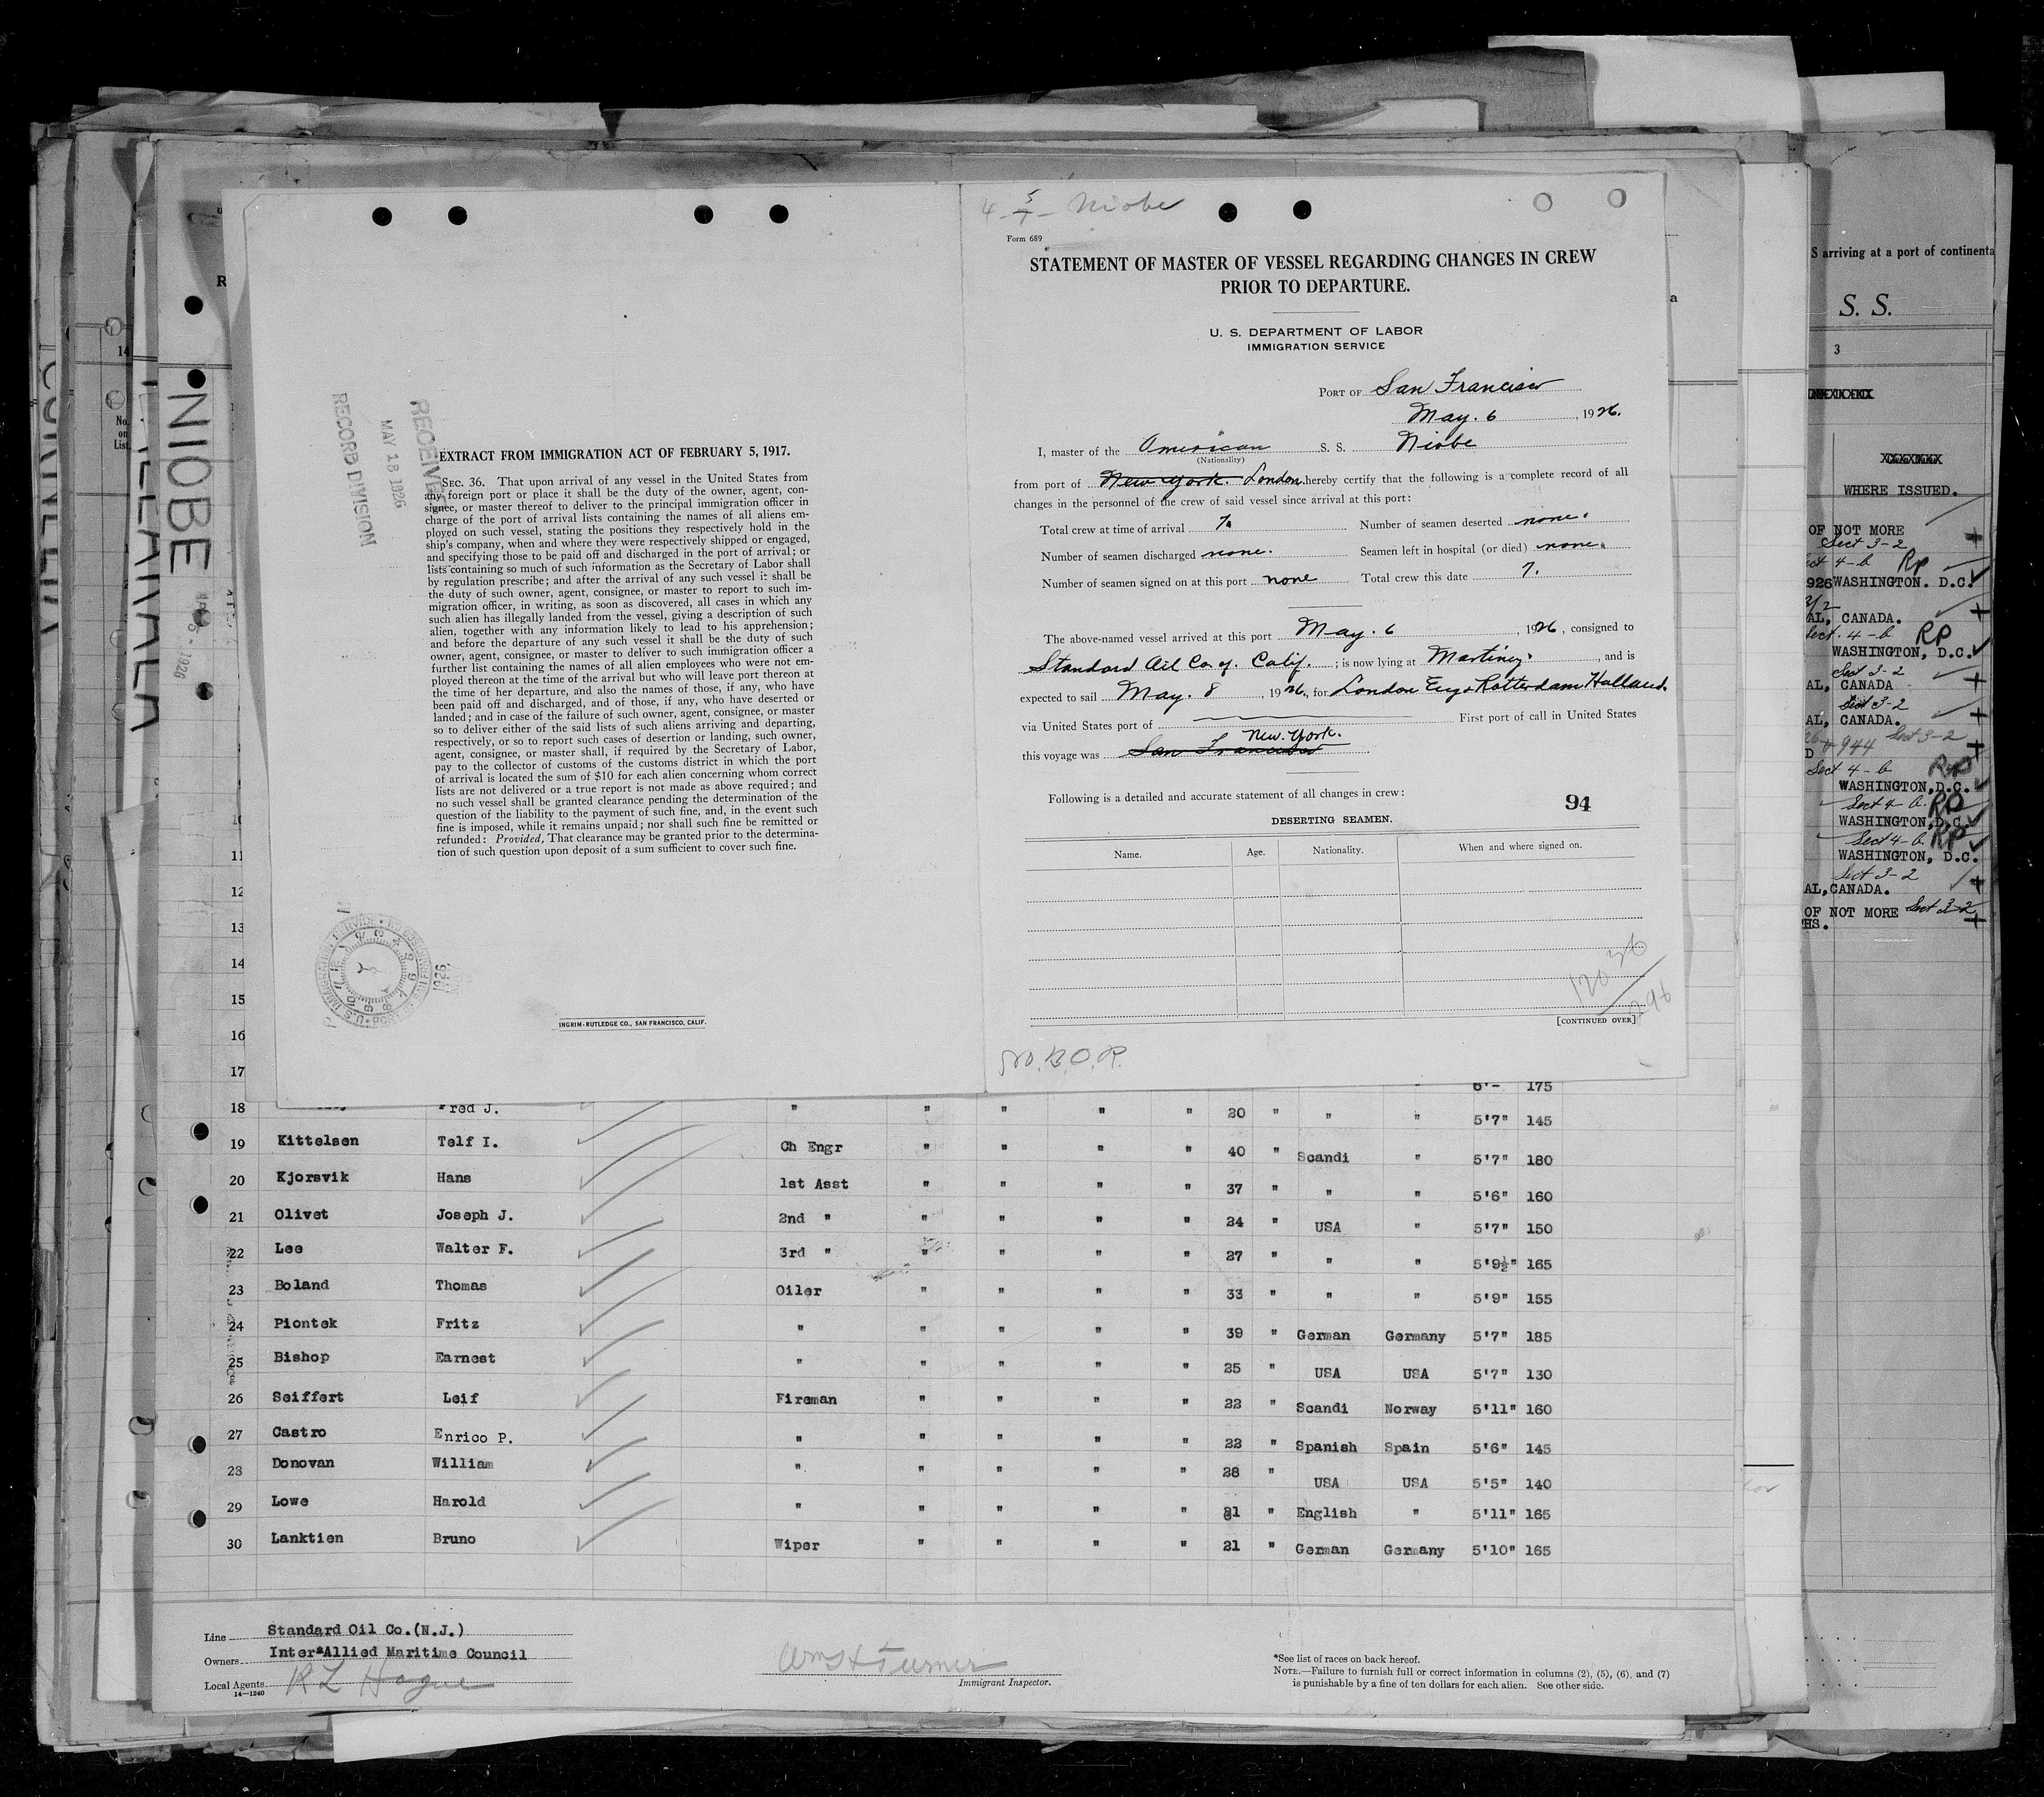 4 - 5/7 - Niobe
Form 689
STATEMENT OF MASTER OF VESSEL REGARDING CHANGES IN CREW
PRIOR TO DEPARTURE.
U. S. DEPARTMENT OF LABOR
IMMIGRATION SERVICE
PORT OF San Francisco
May. 6, 1926.
I, master of the American S. S. Niobe
(Nationality)
from port of New York. London. hereby certify that the following is a complete record of all
changes in the personnel of the crew of said vessel since arrival at this port:
Total crew at time of arrival 7. Number of seamen deserted none.
Number of seamen discharged none. Seamen left in hospital (or died) none.
Number of seamen signed on at this port none Total crew this date 7.
The above-named vessel arrived at this port May. 6, 1926, consigned to
Standard Oil Co of. Calif. ; is now lying at Martinez, and is
expected to sail May. 8, 1926, for London Eng & Rotterdam Holland.
via United States port of First port of call in United States
New. York.
this voyage was San Francisco
Following is a detailed and accurate statement of all changes in crew:
94
DESERTING SEAMEN.
Name. Age. Nationality. When and where signed on.
[CONTINUED OVER]
RECEIVED
MAY 18 1926
RECORD DIVISION
EXTRACT FROM IMMIGRATION ACT OF FEBRUARY 5, 1917.
SEC. 36. That upon arrival of any vessel in the United States from
any foreign port or place it shall be the duty of the owner, agent, con-
signee, or master thereof to deliver to the principal immigration officer in
charge of the port of arrival lists containing the names of all aliens em-
ployed on such vessel, stating the positions they respectively hold in the
ship's company, when and where they were respectively shipped or engaged,
and specifying those to be paid off and discharged in the port of arrival; or
lists containing so much of such information as the Secretary of Labor shall
by regulation prescribe; and after the arrival of any such vessel it shall be
the duty of such owner, agent, consignee, or master to report to such im-
migration officer, in writing, as soon as discovered, all cases in which any
such alien has illegally landed from the vessel, giving a description of such
alien, together with any information likely to lead to his apprehension;
and before the departure of any such vessel it shall be the duty of such
owner, agent, consignee, or master to deliver to such immigration officer a
further list containing the names of all alien employees who were not em-
ployed thereon at the time of the arrival but who will leave port thereon at
the time of her departure, and also the names of those, if any, who have
been paid off and discharged, and of those, if any, who have deserted or
landed; and in case of the failure of such owner, agent, consignee, or master
so to deliver either of the said lists of such aliens arriving and departing,
respectively, or so to report such cases of desertion or landing, such owner,
agent, consignee, or master shall, if required by the Secretary of Labor,
pay to the collector of customs of the customs district in which the port
of arrival is located the sum of $10 for each alien concerning whom correct
lists are not delivered or a true report is not made as above required; and
no such vessel shall be granted clearance pending the determination of the
question of the liability to the payment of such fine, and, in the event such
fine is imposed, while it remains unpaid; nor shall such fine be remitted or
refunded: Provided, That clearance may be granted prior to the determina-
tion of such question upon deposit of a sum sufficient to cover such fine.
1926
INGRIM-RUTLEDGE CO., SAN FRANCISCO, CALIF.
NIOBE
1926
14
No.
on
List.
11
12
13
14
15
16
17 6'- 175
18 red J. " " " " " 20 " " " 5'7" 145
19 Kittelsen Telf I. Ch Engr " " " " 40 " Scandi " 5'7" 180
20 Kjorsvik Hans 1st Asst " " " " 37 " " " 5'6" 160
21 Olivet Joseph J. 2nd " " " " " 24 " USA " 5'7" 150
22 Lee Walter F. 3rd " " " " " 27 " " " 5'9½" 165
23 Boland Thomas Oiler " " " " 33 " " " 5'9" 155
24 Piontek Fritz " " " " " 39 " German Germany 5'7" 185
25 Bishop Earnest " " " " " 25 " USA USA 5'7" 130
26 Seiffert Leif Fireman " " " " 22 " Scandi Norway 5'11" 160
27 Castro Enrico P. " " " " " 22 " Spanish Spain 5'6" 145
28 Donovan William " " " " " 28 " USA USA 5'5" 140
29 Lowe Harold " " " " " 21 " English " 5'11" 165
30 Lanktien Bruno Wiper " " " " 21 " German Germany 5'10" 165
Line Standard Oil Co.(N.J.)
Owners Inter*Allied Maritime Council
Local Agents R L Hague
14—1240
Immigrant Inspector.
*See list of races on back hereof.
NOTE.—Failure to furnish full or correct information in columns (2), (5), (6), and (7)
is punishable by a fine of ten dollars for each alien. See other side.
S arriving at a port of continenta
S. S.
3
WHERE ISSUED.
OF NOT MORE
Sect 3-2
Sect 4-b RP
926 WASHINGTON. D.C.
AL, CANADA.
Sect. 4-b RP
WASHINGTON, D.C.
Sect 3-2
AL, CANADA
Sect 3-2
AL, CANADA.
Sect 3-2
Sect 4-b RP
WASHINGTON, D.C.
Sect 4-b. RP
WASHINGTON, D.C.
Sect 4-b. RP
WASHINGTON, D.C.
Sect 3-2
AL, CANADA.
OF NOT MORE Sect 3-2
HS.